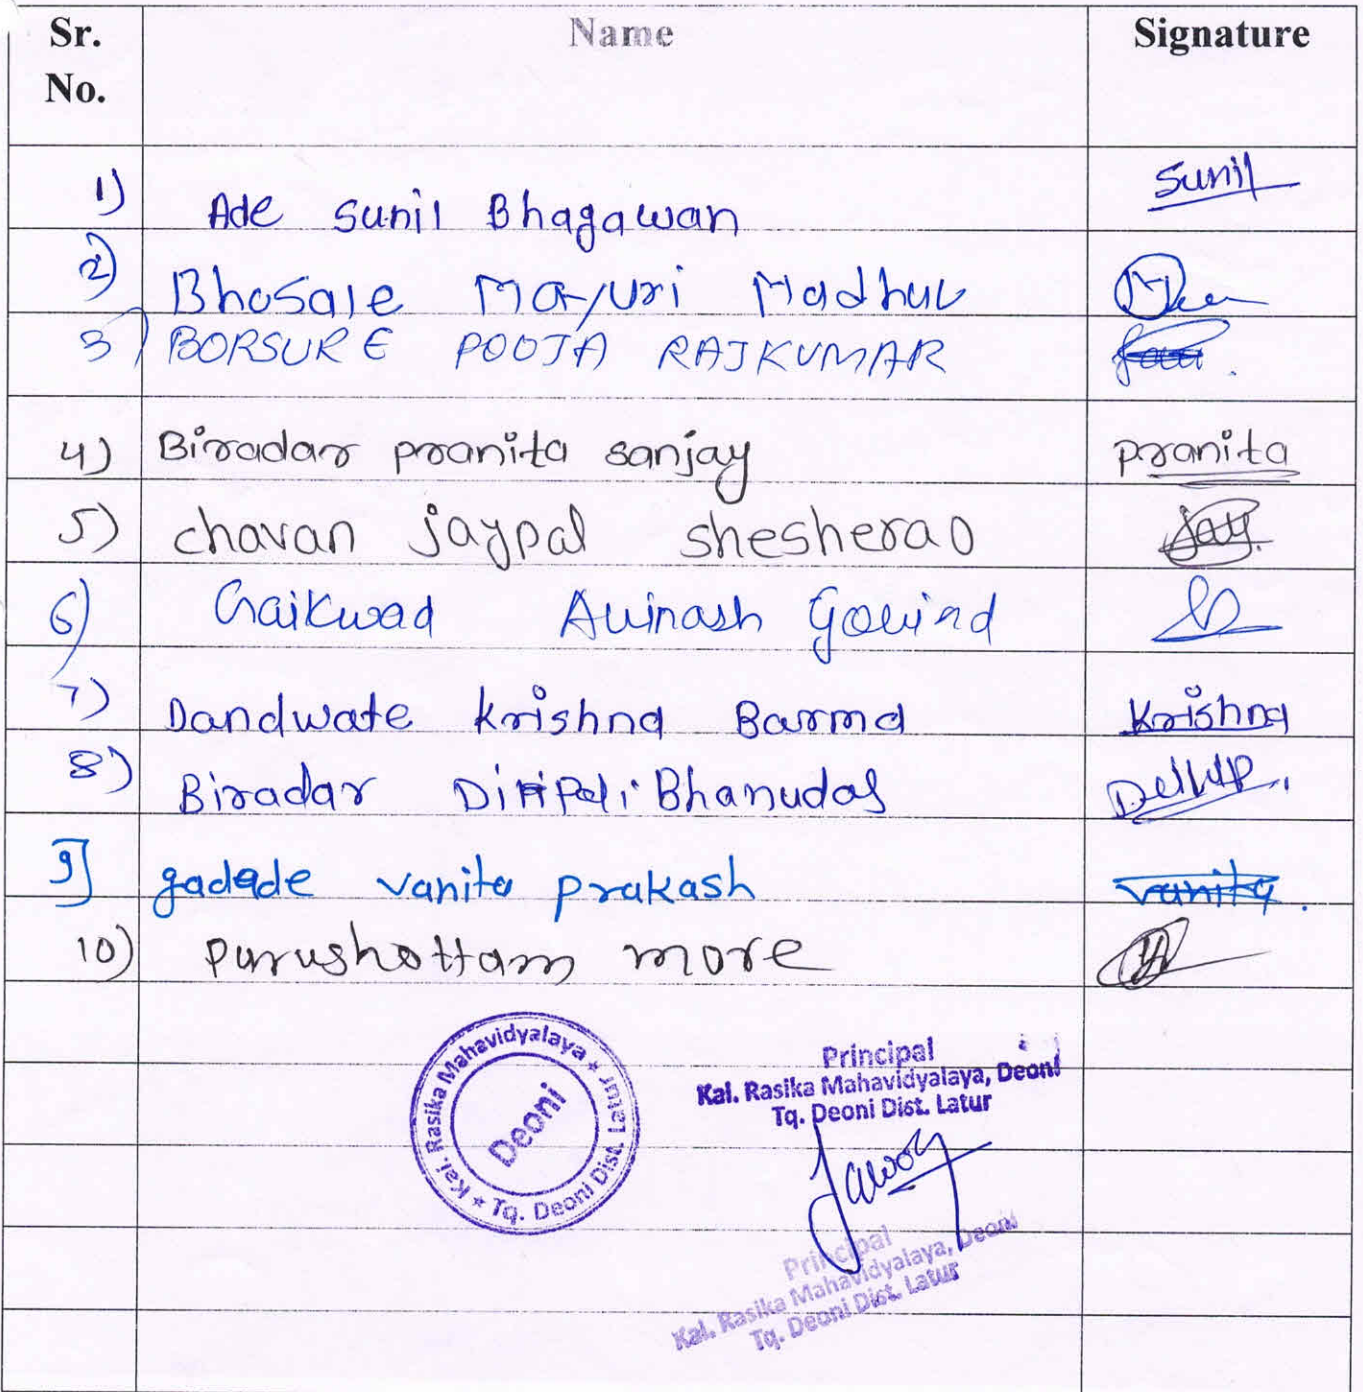 Sr. No. Name Signature
1) Ade Sunil Bhagawan Sunil
2) Bhosale Mayuri Madhuv
3) BORSURE POOJA RAJKUMAR
4) Biradar pranita sanjay pranita
5) chavan jaypal shesherao jay.
6) Gaikwad Avinash Govind
7) Dandwate krishna Barma Krishna
8) Biradar Bhanudas
9] gadade vanita prakash vanita.
10) purushottam more
Kal. Rasika Mahavidyalaya * Tq. Deoni Dist. Latur *
Deoni
Principal
Kal. Rasika Mahavidyalaya, Deoni
Tq. Deoni Dist. Latur
Principal
Kal. Rasika Mahavidyalaya, Deoni
Tq. Deoni Dist. Latur